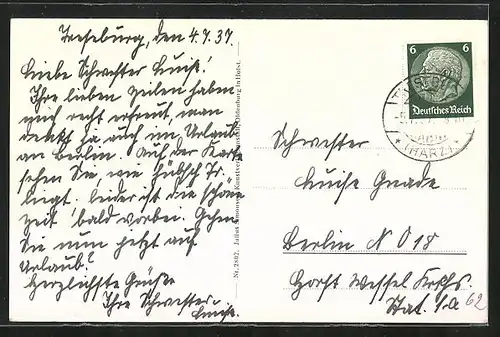 Treseburg, den 4.7.37.
Liebe Schwester Luise!
Ihre lieben Zeilen haben
mich recht erfreut, man
denkt ja auch im Urlaub
an Berlin. Auf der Karte
sehen Sie, wie hübsch Tr.
liegt. Leider ist die schöne
Zeit bald vorbei. Gehen
Sie nun jetzt auf
Urlaub?
Herzlichste Grüße
Ihre Schwester
Luise.
Nr. 2802. Julius Simonsen, Oldenburg in Holst.
6 6
Deutsches Reich
(HARZ)
Schwester
Luise Gnade
Berlin N O 18
Horst Wessel Krkhs.
Stat. 1a
62